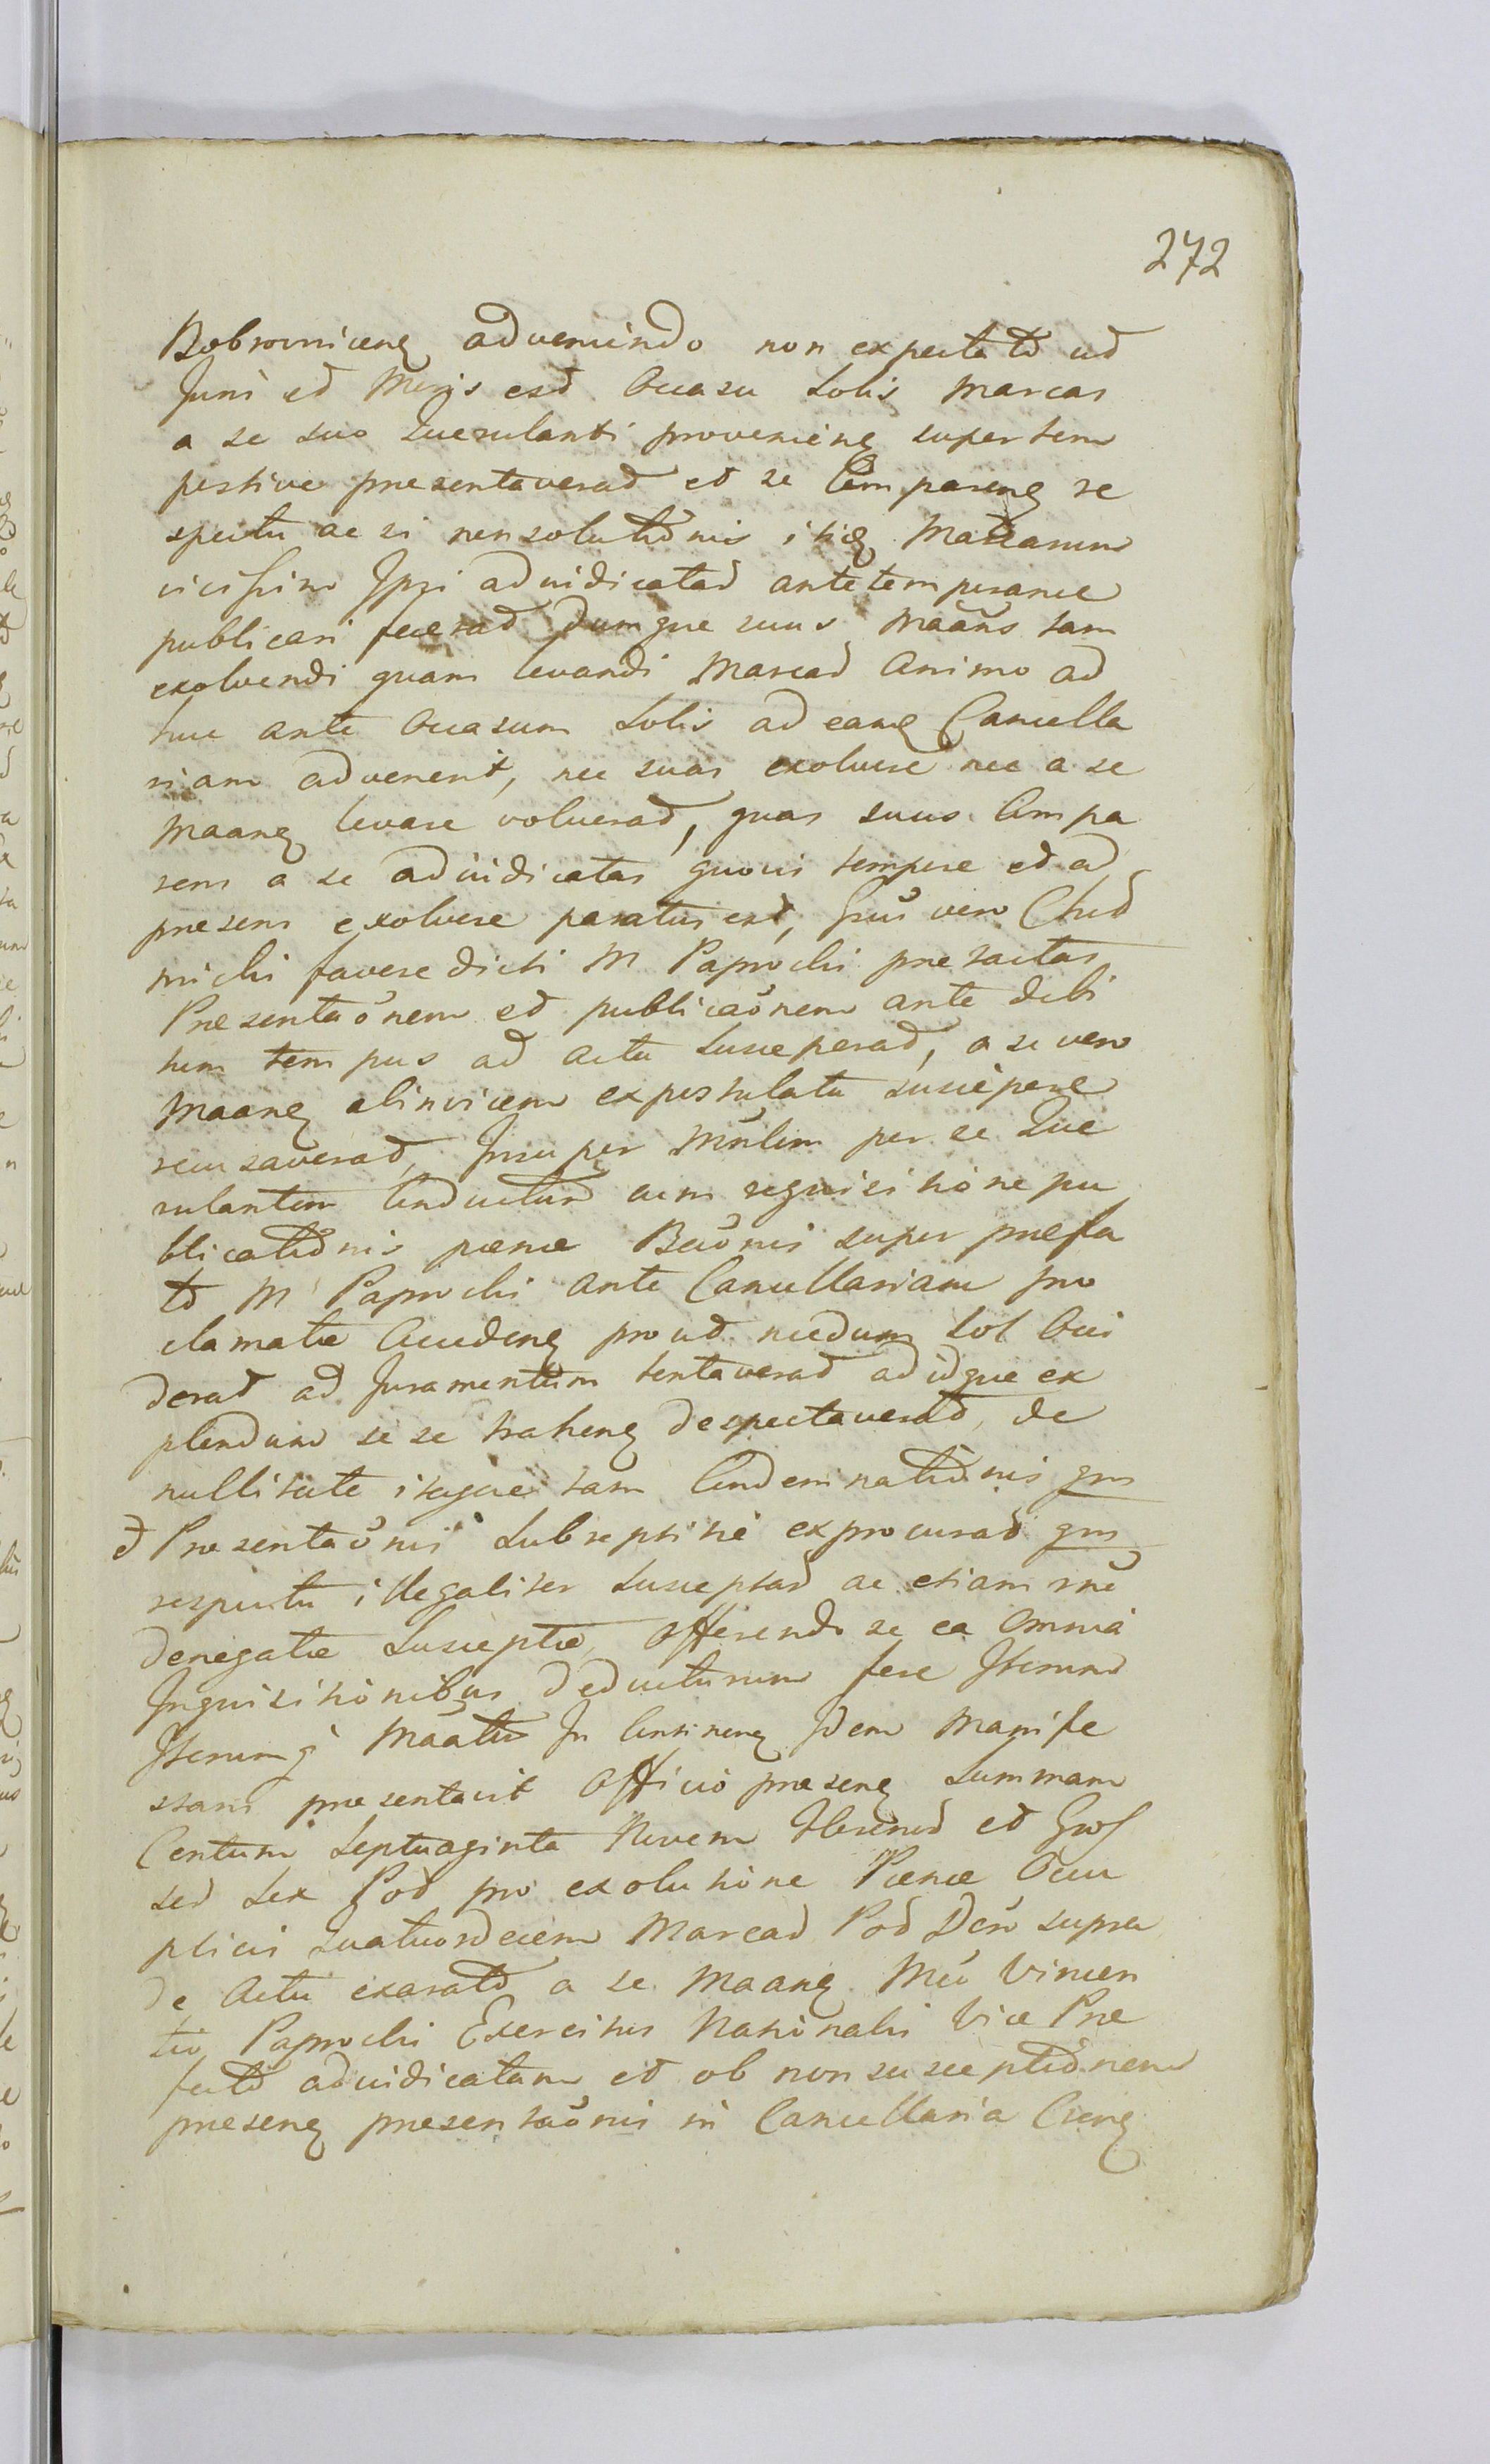 272
Bobrovnicens adveniendo non expectato ut
Juris et Moris est Occasu Solis Marcas
a se suo Querulanti provenien supertem
pestive praesentaverat et se Comparens re
spectu ac si non solutionis istar Marcarum
vicissim Ipsi adiudicatas antetemporance
publicari fecerat dumque suus Maans tam
exolvendi quam levandi Marcas Animo ad
huc ante Occasum Solis ad eand Cancella
riam advenerit, nec suas exolvere nec a se
Maane levare voluerat, quas suus Compa
rens a se adiudicatas quovis tempore et ad
praesens exolvere paratus est, Gnus vero Chud
micki favore dicti M Paprocki praetactas
Praesentaonem et publicaonem ante debi
tum tempus ad acta susceperat, a se vero
Maane abinvicem expostulata suscipere
recusaverat, Insuper Mnlem per se Que
rulantem Conductum cum requisitione pu
blicationis poenae Banonis super praefa
to M Paprocki ante Cancellariam pro
clamatae Accedens prout necdum Sol Occi
derat ad Juramentum tentaverat adidque ex
plendum se se trahens despectaverat, de
nullitate itaque tam Condemnationis qm
et Praesentaonis subreptitie exprocurat qm
respectu illegaliter susceptas ac etiam rne
denegatae susceptae, Offerendo se ea Omnia
Inquisitionibus deducturum fere Iterum
Iterumq Maatur In Continen Idem Manife
stans praesentavit Officio praesen Summam
Centum Septuaginta Novem Florenos et Gros
sos Sex Pol pro exolutione Poenae Occu
plicis Quatuordecem Marcas Pol Dno supra
de Actu exarato a se Maane Mco Vincen
tio Paprocki Exercitus Nationalis Vice Prae
fecto adiudicatam et ob non susceptionem
praesen praesentaonis in Cancellaria Ciens